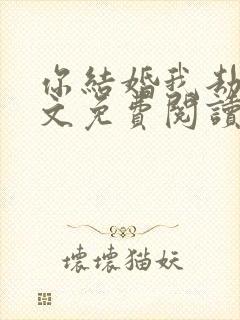 你結婚我劫
文免費閱讀
壞壞猫妖